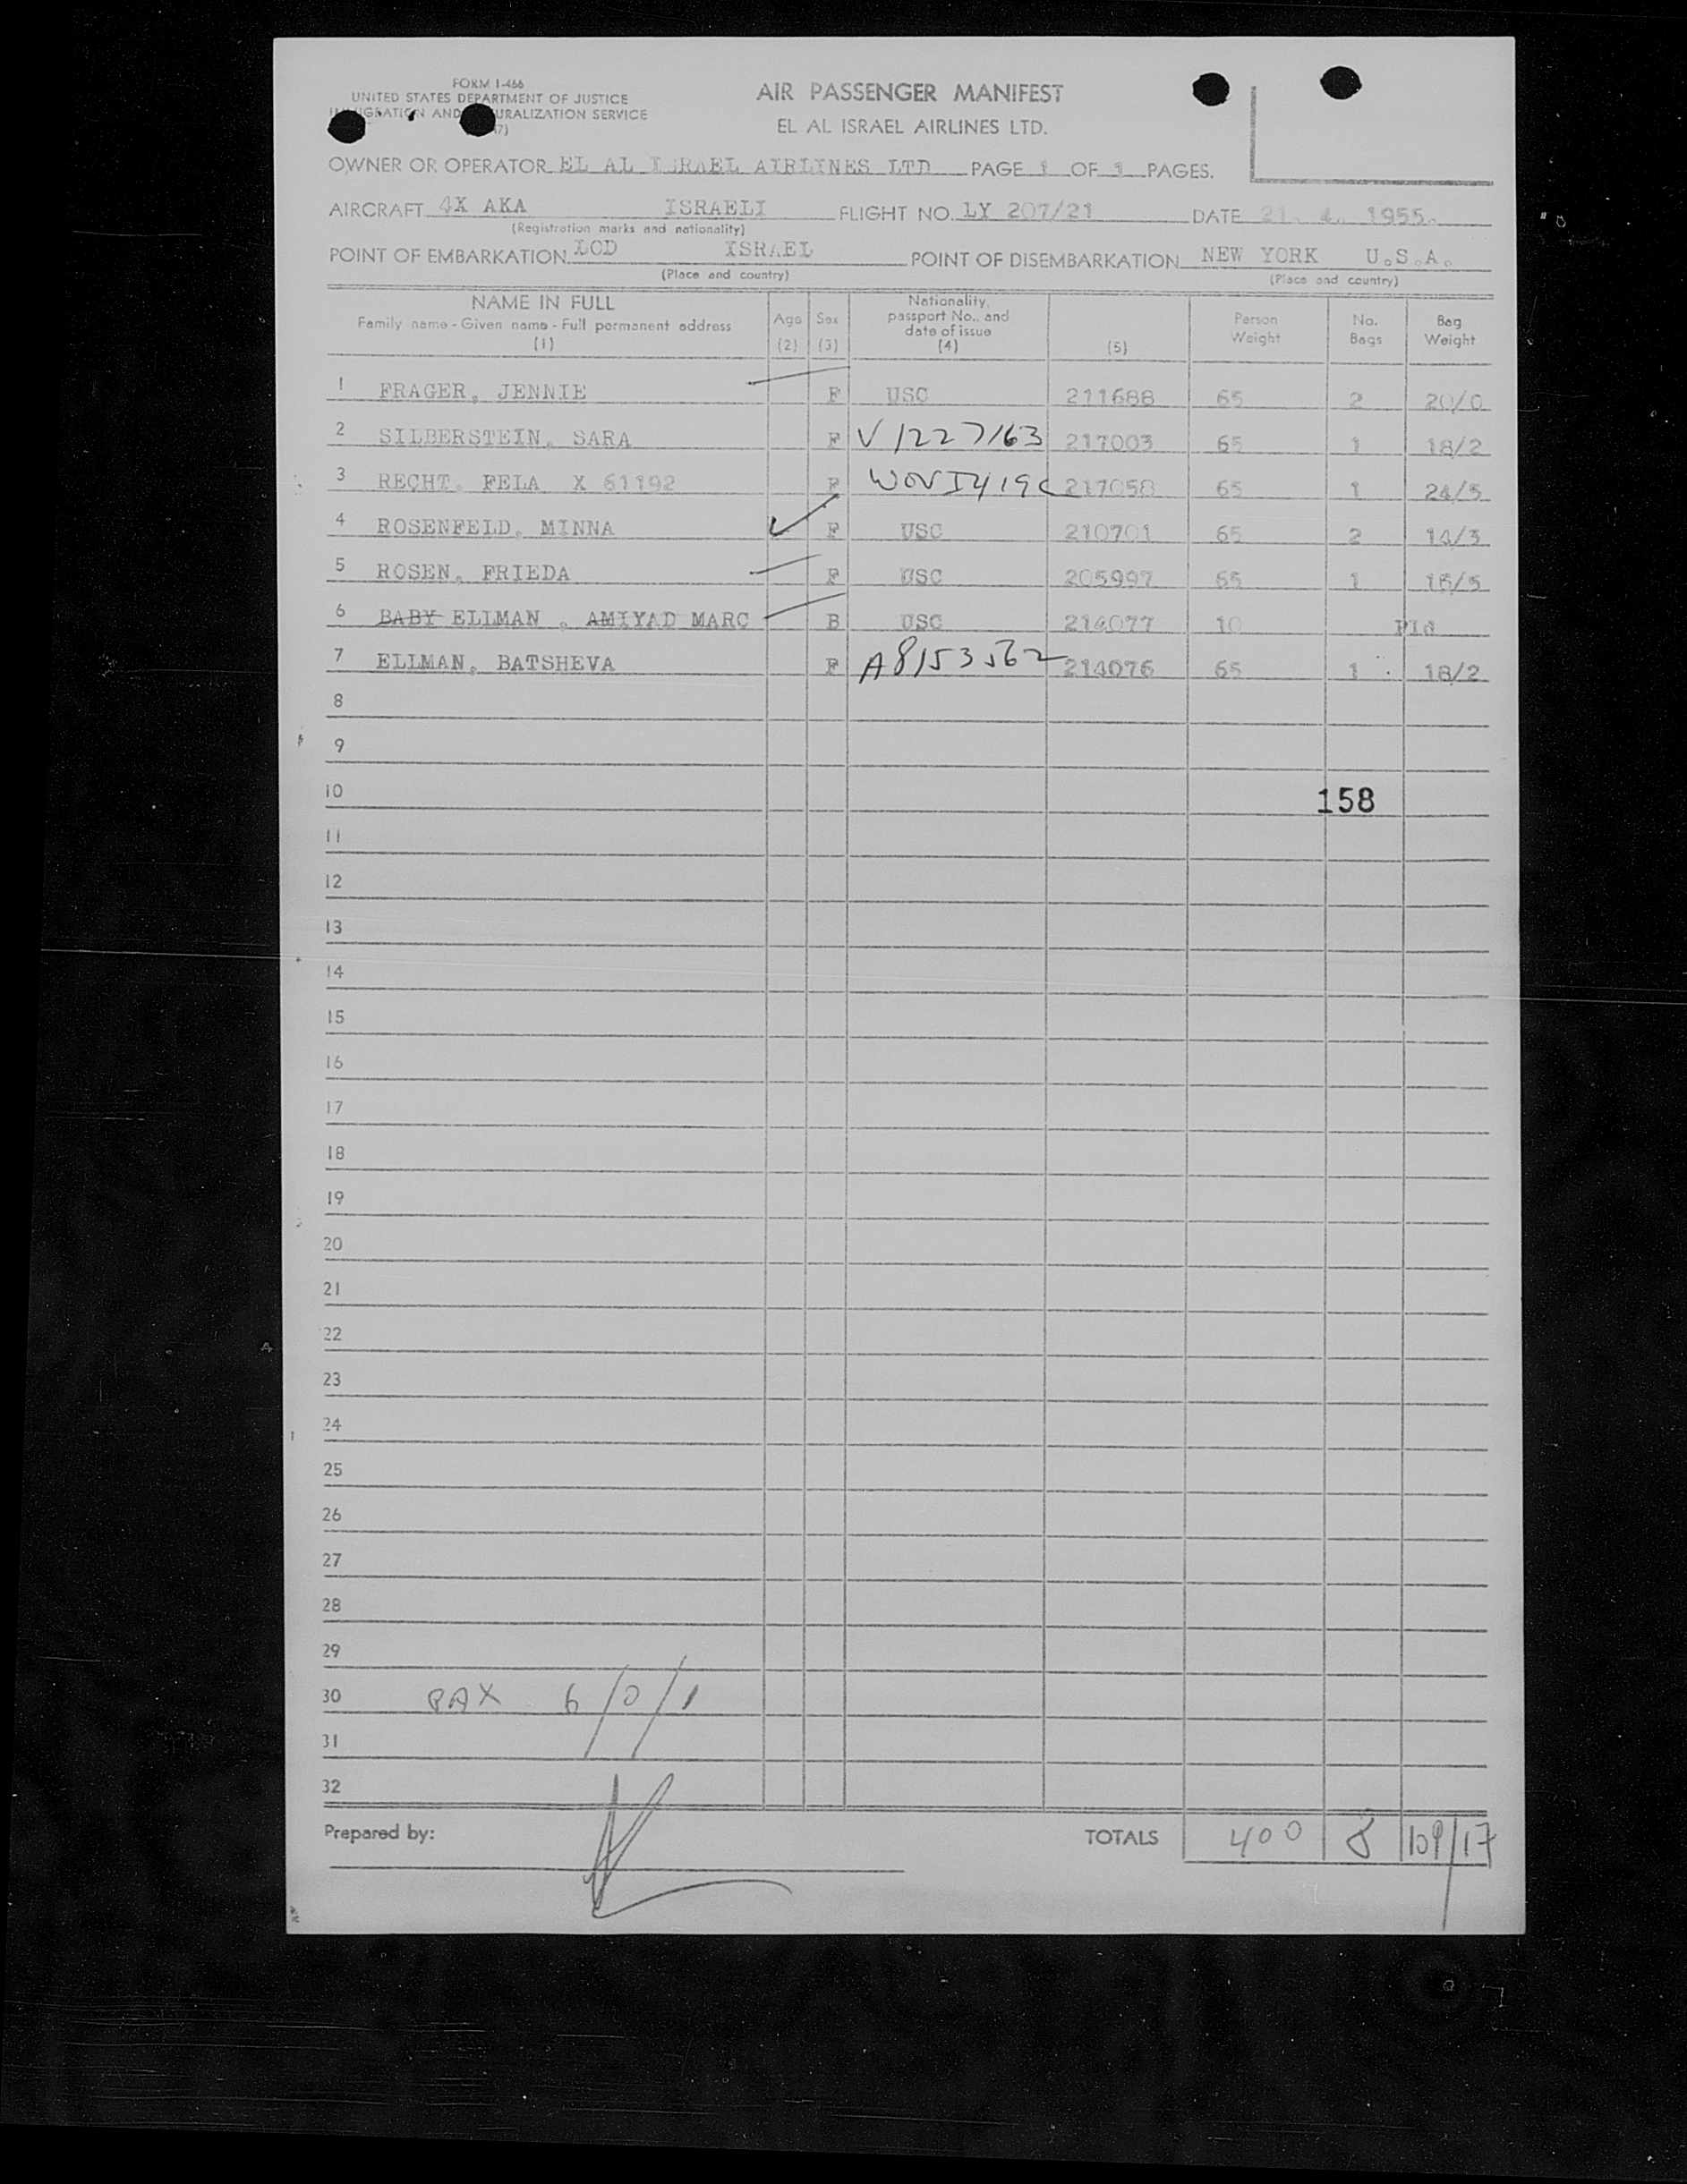 FORM I-466
UNITED STATES DEPARTMENT OF JUSTICE
IMMIGRATION AND NATURALIZATION SERVICE
AIR PASSENGER MANIFEST
EL AL ISRAEL AIRLINES LTD.
OWNER OR OPERATOR EL AL ISRAEL AIRLINES LTD PAGE 1 OF 1 PAGES.
AIRCRAFT 4X AKA ISRAELI FLIGHT NO. LY 207/21 DATE 21. 4. 1955.
(Registration marks and nationality)
POINT OF EMBARKATION LOD ISRAEL POINT OF DISEMBARKATION NEW YORK U.S.A.
(Place and country) (Place and country)
NAME IN FULL
Family name - Given name - Full permanent address
(1)
Age
(2)
Sex
(3)
Nationality, passport No., and date of issue
(4)
(5)
Person Weight
No. Bags
Bag Weight
1 FRAGER, JENNIE F USC 211688 65 2 20/0
2 SILBERSTEIN, SARA F V1227163 217003 65 1 18/2
3 RECHT, FELA X 61192 F 217058 65 1 24/5
4 ROSENFELD, MINNA F USC 210701 65 2 14/3
5 ROSEN, FRIEDA F USC 205997 65 1 15/5
6 BABY ELLMAN, AMIYAD MARC B USC 214077 10
7 ELLMAN, BATSHEVA F A8153562 214076 65 1 18/2
8
9
10 158
11
12
13
14
15
16
17
18
19
20
21
22
23
24
25
26
27
28
29
30 PAX 6/0/1
31
32
Prepared by: TOTALS 400 8 109/17